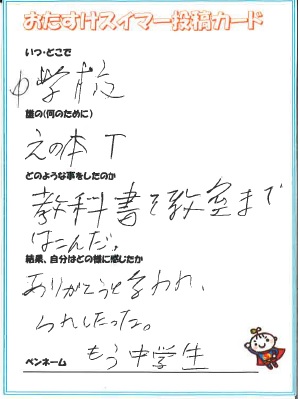 おたすけスイマー投稿カード
いつ・どこで
中学校
誰の(何のために)
えの本 T
どのような事をしたのか
教科書を教室まで
はこんだ。
結果、自分はどの様に感じたか
ありがとうと言われ、
うれしかった。
ペンネーム もう中学生